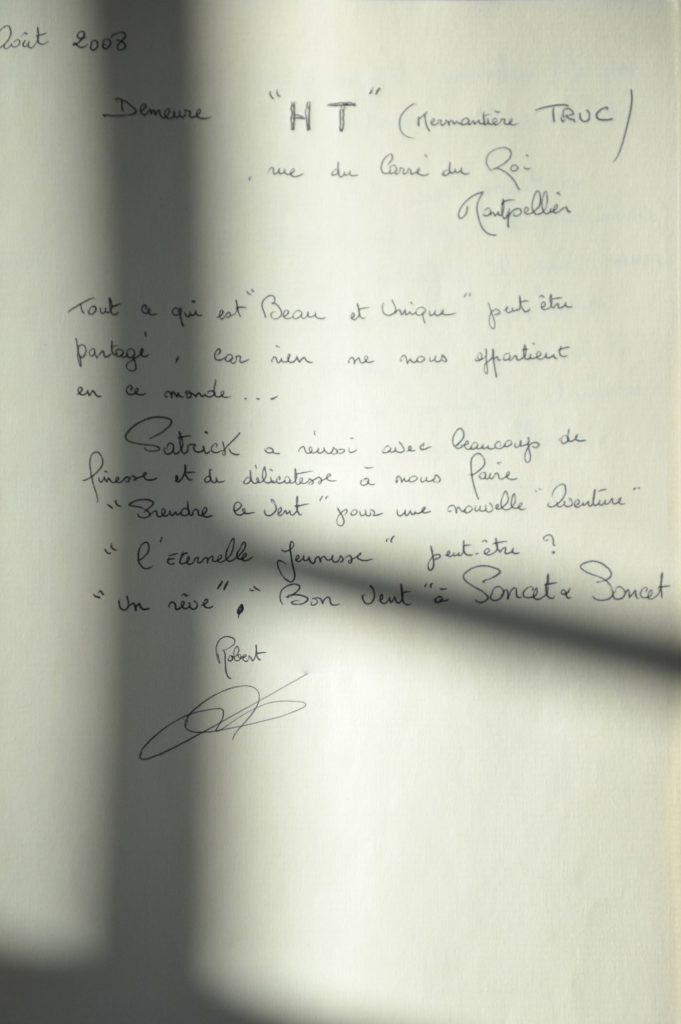 Août 2008
Demeure "HT" (Mermantière TRUC)
, rue du Carré du Roi
Montpellier
Tout ce qui est "Beau et Unique" peut être
partagé, car rien ne nous appartient
en ce monde...
Patrick a réussi avec beaucoup de
finesse et de délicatesse à nous faire
"Prendre le Vent" pour une nouvelle "Aventure"
"l'Eternelle Jeunesse" peut-être ?
"un rêve", "Bon Vent" à Poncet & Poncet
Robert